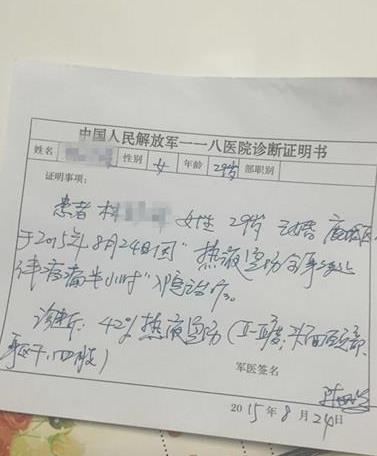 中国人民解放军一一八医院诊断证明书
姓名 性别 女 年龄 29岁 部职别
证明事项:
患者 林 女性 29岁 已婚
于2015年8月24日因"热液烫伤全身多处
伴疼痛半小时"入院治疗。
诊断: 42%热液烫伤(II-III度, 头面颈部、
躯干、四肢)
军医签名
2015年8月24日